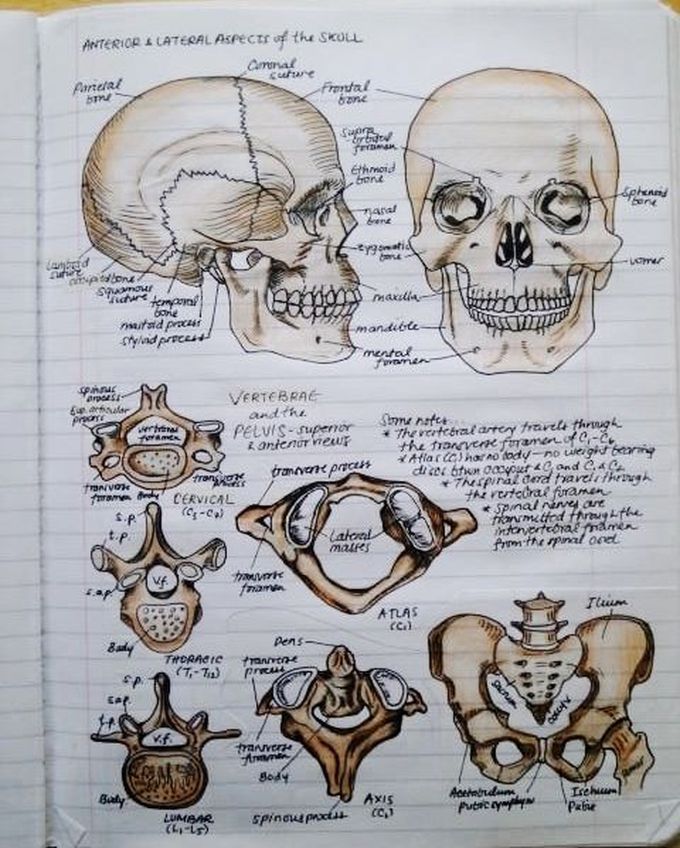 ANTERIOR & LATERAL ASPECTS of the SKULL
Coronal
suture
Parietal
bone
Frontal
bone
Supra
orbital
foramen
Ethmoid
bone
Sphenoid
bone
nasal
bone
zygomatic
bone
vomer
Lambdoid
suture
occipital bone
squamous
suture
temporal
bone
maxilla
mastoid process
styloid process
mandible
mental
foramen
VERTEBRAE
and the
PELVIS - superior
& anterior views
spinous
process
Sup. articular
process
vertebral
foramen
transverse
foramen
Body
transverse
process
CERVICAL
Some notes...
* The vertebral artery travels through
the transverse foramen of C1-C6
* Atlas (C1) has no body - no weight bearing
discs btwn occiput & C1 and C1 & C2
* The spinal cord travels through
the vertebral foramen
* spinal nerves are
transmitted through the
intervertebral foramen
from the spinal cord
transverse process
Lateral
masses
transverse
foramen
ATLAS
(C1)
s.p.
t.p.
s.a.p.
v.f.
Body
THORACIC
(T1-T12)
Dens
transverse
process
transverse
foramen
Body
spinous process
AXIS
s.p.
s.a.p.
t.p.
v.f.
Body
LUMBAR
(L1-L5)
Ilium
sacrum
coccyx
Femur
Acetabulum
pubic symphysis
Ischium
Pubis